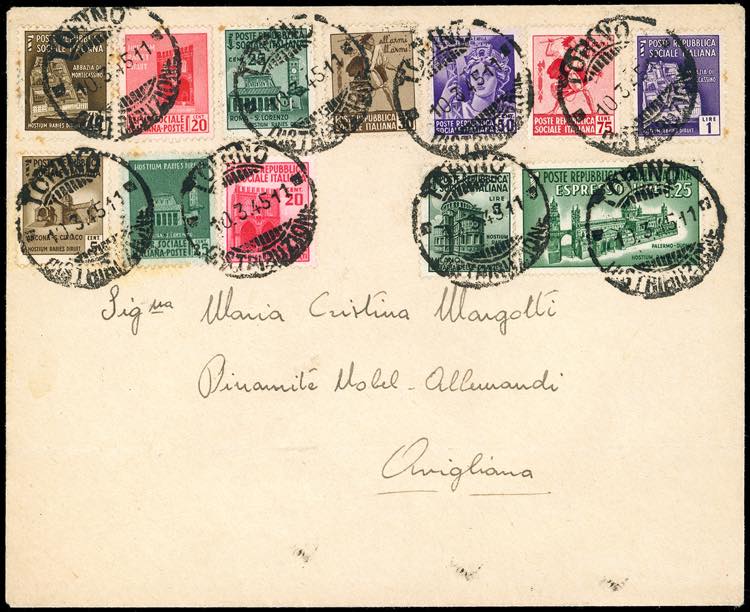 POSTE REPUBBLICA SOCIALE ITALIANA
ABBAZIA DI MONTECASSINO
HOSTIUM RABIES DIRUIT
SOCIALE ITALIANA-POSTE
CENT. 20
POSTE REPUBBLICA SOCIALE ITALIANA
CENT. 25
ROMA - S. LORENZO
HOSTIUM RABIES DIRUIT
all'armi all'armi
POSTE REPUBBLICA SOCIALE ITALIANA
POSTE REPUBBLICA SOCIALE ITALIANA
50
POSTE REPUBBLICA SOCIALE ITALIANA
CENT. 75
POSTE REPUBBLICA SOCIALE ITALIANA
ABBAZIA DI MONTECASSINO
HOSTIUM RABIES DIRUIT
LIRE 1
TORINO
10.3.45-11
DISTRIBUZIONE
ANCONA-S. CIRIACO
HOSTIUM RABIES DIRUIT
CENT
HOSTIUM RABIES DIRUIT
SOCIALE ITALIANA
25
REPUBBLICA SOCIALE ITALIANA
CENT. 20
POSTE REPUBBLICA SOCIALE ITALIANA
LIRE
POSTE REPUBBLICA SOCIALE ITALIANA
ESPRESSO
1.25
PALERMO-DUOMO
HOSTIUM RABIES DIRUIT
TORINO
10.3.45-11
DISTRIBUZIONE
Signa Maria Cristina Margotti
Dinamite Nobel-Allemandi
Avigliana